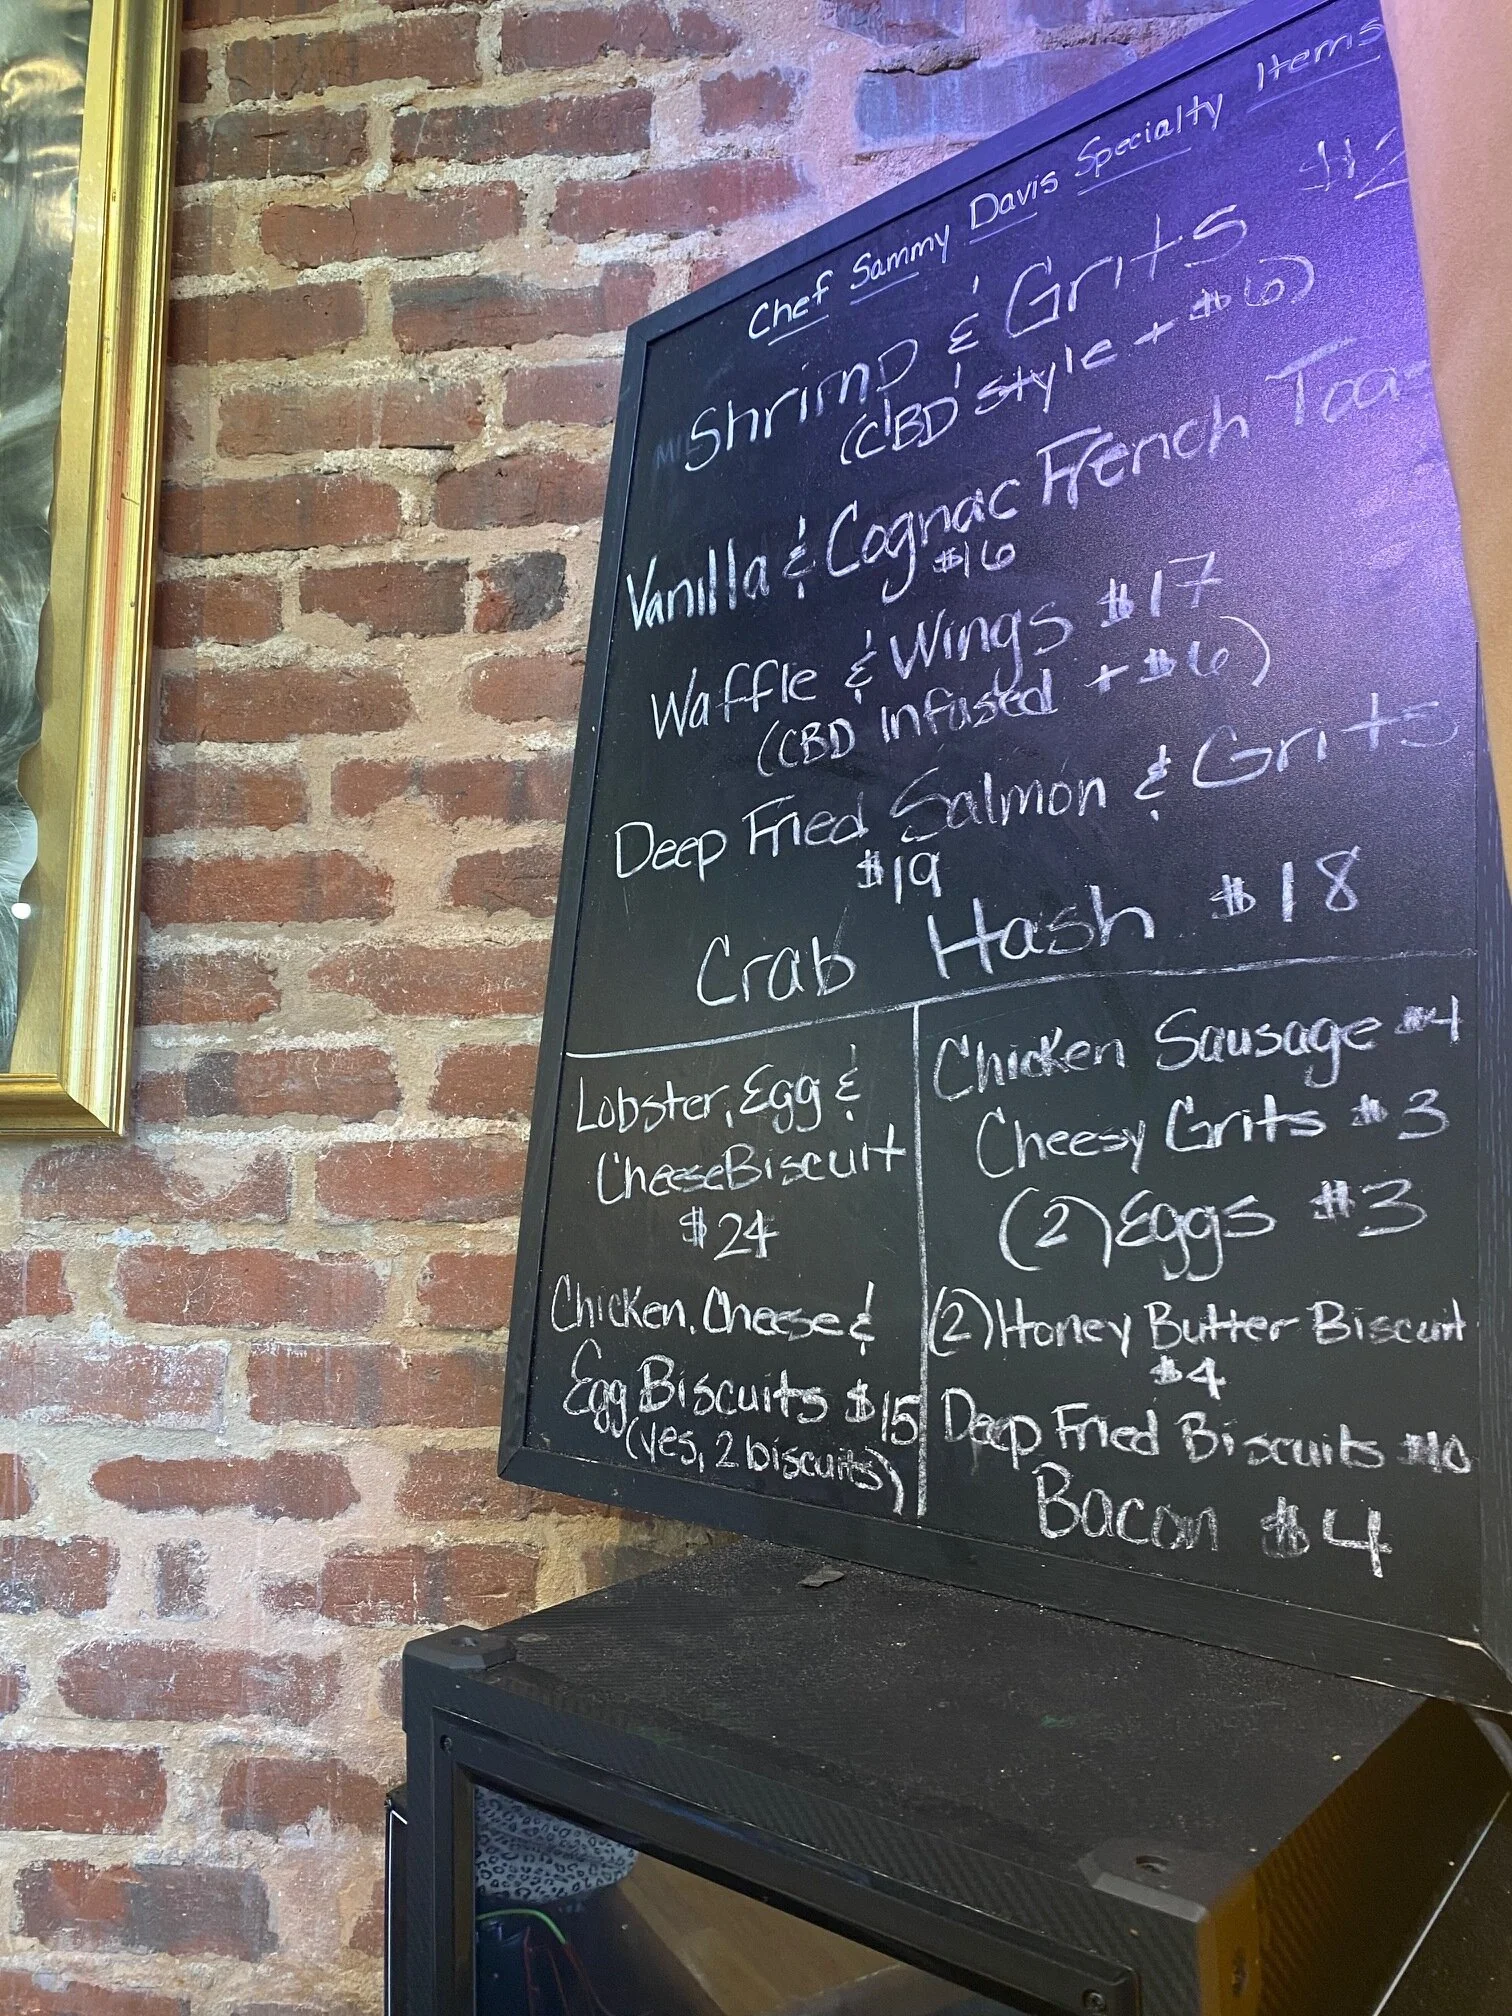 Chef Sammy Davis Specialty Items
Shrimp & Grits
(CBD Style + $6)
Vanilla & Cognac French
$16
Waffle & Wings $17
(CBD Infused + $6)
Deep Fried Salmon & Grits
$19
Crab Hash $18
Lobster, Egg &
Cheese Biscuit
$24
Chicken, Cheese &
Egg Biscuits $15
(yes, 2 biscuits)
Chicken Sausage $4
Cheesy Grits $3
(2) Eggs $3
(2) Honey Butter Biscuit
$4
Deep Fried Biscuits $10
Bacon $4